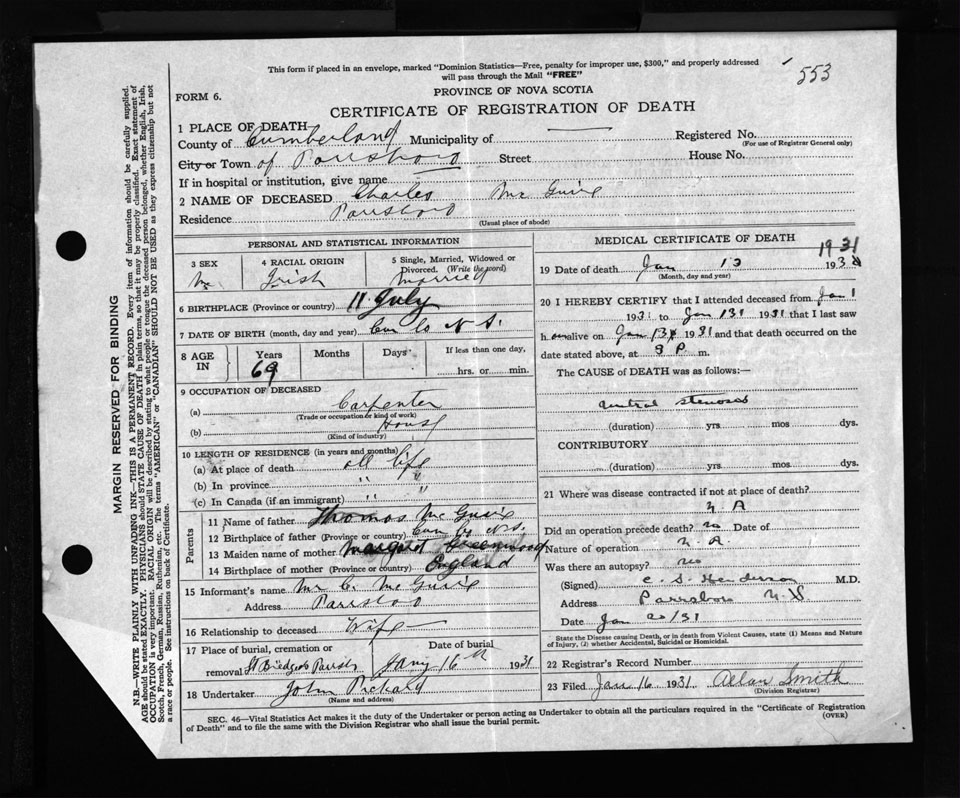 This form if placed in an envelope, marked "Dominion Statistics—Free, penalty for improper use, $300," and properly addressed
will pass through the Mail "FREE"
553
PROVINCE OF NOVA SCOTIA
FORM 6.
CERTIFICATE OF REGISTRATION OF DEATH
1 PLACE OF DEATH
County of Cumberland Municipality of — Registered No.
(For use of Registrar General only)
City or Town of Parrsboro Street House No.
If in hospital or institution, give name
2 NAME OF DECEASED Charles Mc Guire
Residence Parrsboro
(Usual place of abode)
PERSONAL AND STATISTICAL INFORMATION
3 SEX 4 RACIAL ORIGIN 5 Single, Married, Widowed or
Divorced. (Write the word)
M Irish Married
6 BIRTHPLACE (Province or country) 11 July
7 DATE OF BIRTH (month, day and year) Cum Co N.S.
8 AGE IN Years Months Days If less than one day,
69 hrs. or min.
9 OCCUPATION OF DECEASED
(a) Carpenter
(Trade or occupation or kind of work)
(b) House
(Kind of industry)
10 LENGTH OF RESIDENCE (in years and months)
(a) At place of death all life
(b) In province " "
(c) In Canada (if an immigrant) " "
Parents
11 Name of father Thomas Mc Guire
12 Birthplace of father (Province or country) Cum Co N.S.
13 Maiden name of mother Margaret Greenwood
14 Birthplace of mother (Province or country) England
15 Informant's name Mrs C. Mc Guire
Address Parrsboro
16 Relationship to deceased Wife —
17 Place of burial, cremation or Date of burial
removal St Bridgets Parrsb Jany 16th 1931
18 Undertaker John Pickard
(Name and address)
MEDICAL CERTIFICATE OF DEATH
1931
19 Date of death Jan 13 193
(Month, day and year)
20 I HEREBY CERTIFY that I attended deceased from Jan 1
1931 to Jan 13 1931 that I last saw
h alive on Jan 13 1931 and that death occurred on the
date stated above, at 9 P m.
The CAUSE of DEATH was as follows:—
stenosis
(duration) yrs. mos. dys.
CONTRIBUTORY
(duration) yrs. mos. dys.
21 Where was disease contracted if not at place of death?
N A
Did an operation precede death? no Date of
Nature of operation N.A.
Was there an autopsy? no
(Signed) C. S. Henderson M.D.
Address Parrsboro N.S
Date Jan /31
State the Disease causing Death, or in death from Violent Causes, state (1) Means and Nature
of Injury, (2) whether Accidental, Suicidal or Homicidal.
22 Registrar's Record Number
23 Filed Jan 16 1931 Allan Smith
(Division Registrar)
SEC. 46—Vital Statistics Act makes it the duty of the Undertaker or person acting as Undertaker to obtain all the particulars required in the "Certificate of Registration
of Death" and to file the same with the Division Registrar who shall issue the burial permit. (OVER)
MARGIN RESERVED FOR BINDING
N.B.—WRITE PLAINLY WITH UNFADING INK—THIS IS A PERMANENT RECORD. Every item of information should be carefully supplied.
AGE should be stated EXACTLY. PHYSICIANS should STATE CAUSE OF DEATH in plain terms, so that it may be properly classified. Exact statement of
OCCUPATION is very important. RACIAL ORIGIN will be described by stating to what people or tongue the deceased person belonged, whether English, Irish,
Scotch, French, German, Russian, Ruthenian, etc. The terms "AMERICAN" or "CANADIAN" SHOULD NOT BE USED as they express citizenship but not
a race or people. See instructions on back of Certificate.